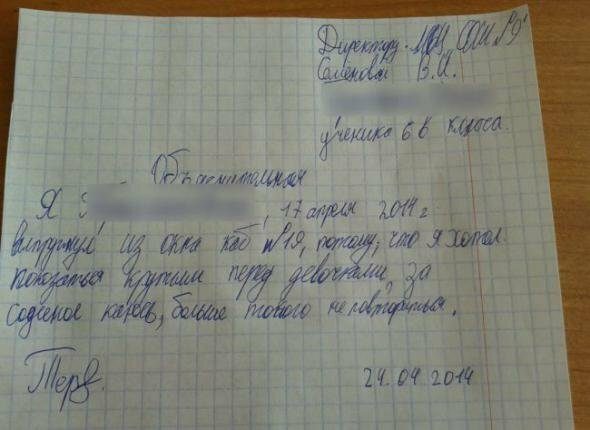 Директору МОУ СОШ №9
Семёновой В.И.
ученика 6 в класса.
Объяснительная
Я 17 апреля 2014 г
выпрыгнул из окна каб №19, потому, что я хотел
показаться крутым перед девочками, за
содеяное каюсь, больше такого не повториться.
24.04 2014